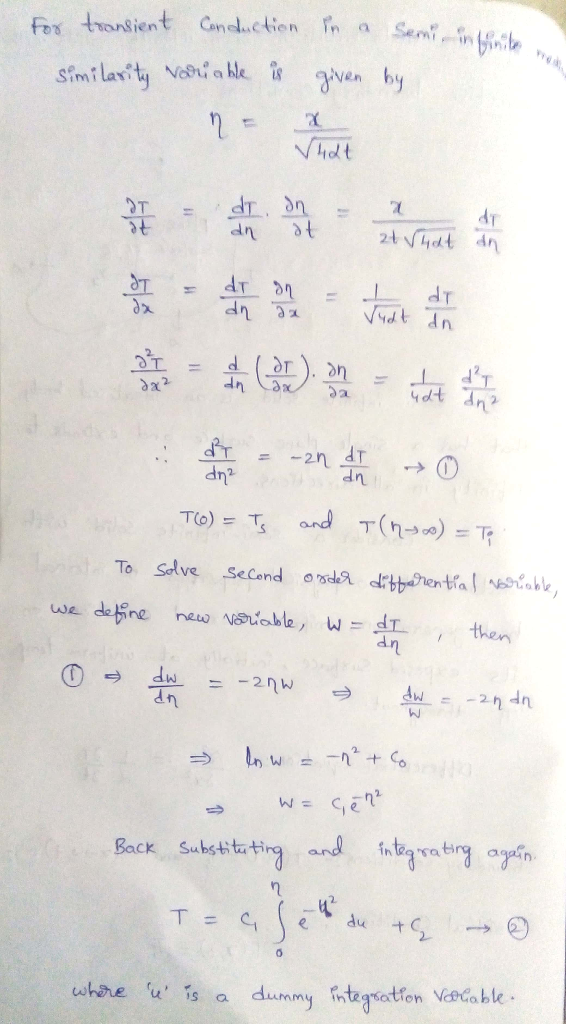 For transient Conduction in a Semi-infinite
similarity variable is given by
η = x / √4αt
∂T/∂t = dT/dη . ∂η/∂t = x / 2t√4αt dT/dη
∂T/∂x = dT/dη ∂η/∂x = 1/√4αt dT/dη
∂²T/∂x² = d/dη (∂T/∂x) . ∂η/∂x = 1/4αt d²T/dη²
∴ d²T/dη² = -2η dT/dη → ①
T(0) = Ts and T(η→∞) = Ti
To solve second order differential variable,
we define new variable, w = dT/dη , then
① ⇒ dw/dη = -2ηw ⇒ dw/w = -2η dη
⇒ ln w = -η² + C₀
⇒ w = C₁e^-η²
Back substituting and integrating again.
T = C₁ ∫₀^η e^-u² du + C₂ → ②
where 'u' is a dummy integration variable.